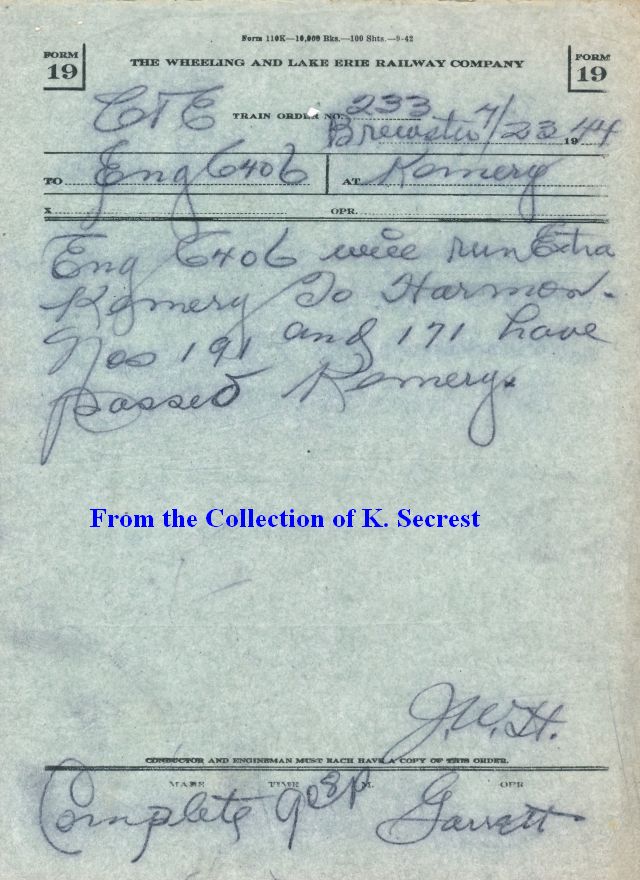 Form 110K—10,000 Bks.—100 Shts.—9-42
FORM 19
THE WHEELING AND LAKE ERIE RAILWAY COMPANY
FORM 19
C&E
TRAIN ORDER NO. 233
Brewster 7/23 1944
TO Eng 6406 AT Romery
X OPR.
Eng 6406 will run Extra
Romery To Harmon.
Nos 191 and 171 have
passed Romery.
From the Collection of K. Secrest
J.W.H.
CONDUCTOR AND ENGINEMAN MUST EACH HAVE A COPY OF THIS ORDER.
MADE TIME M. OPR
Complete 908P Garrett